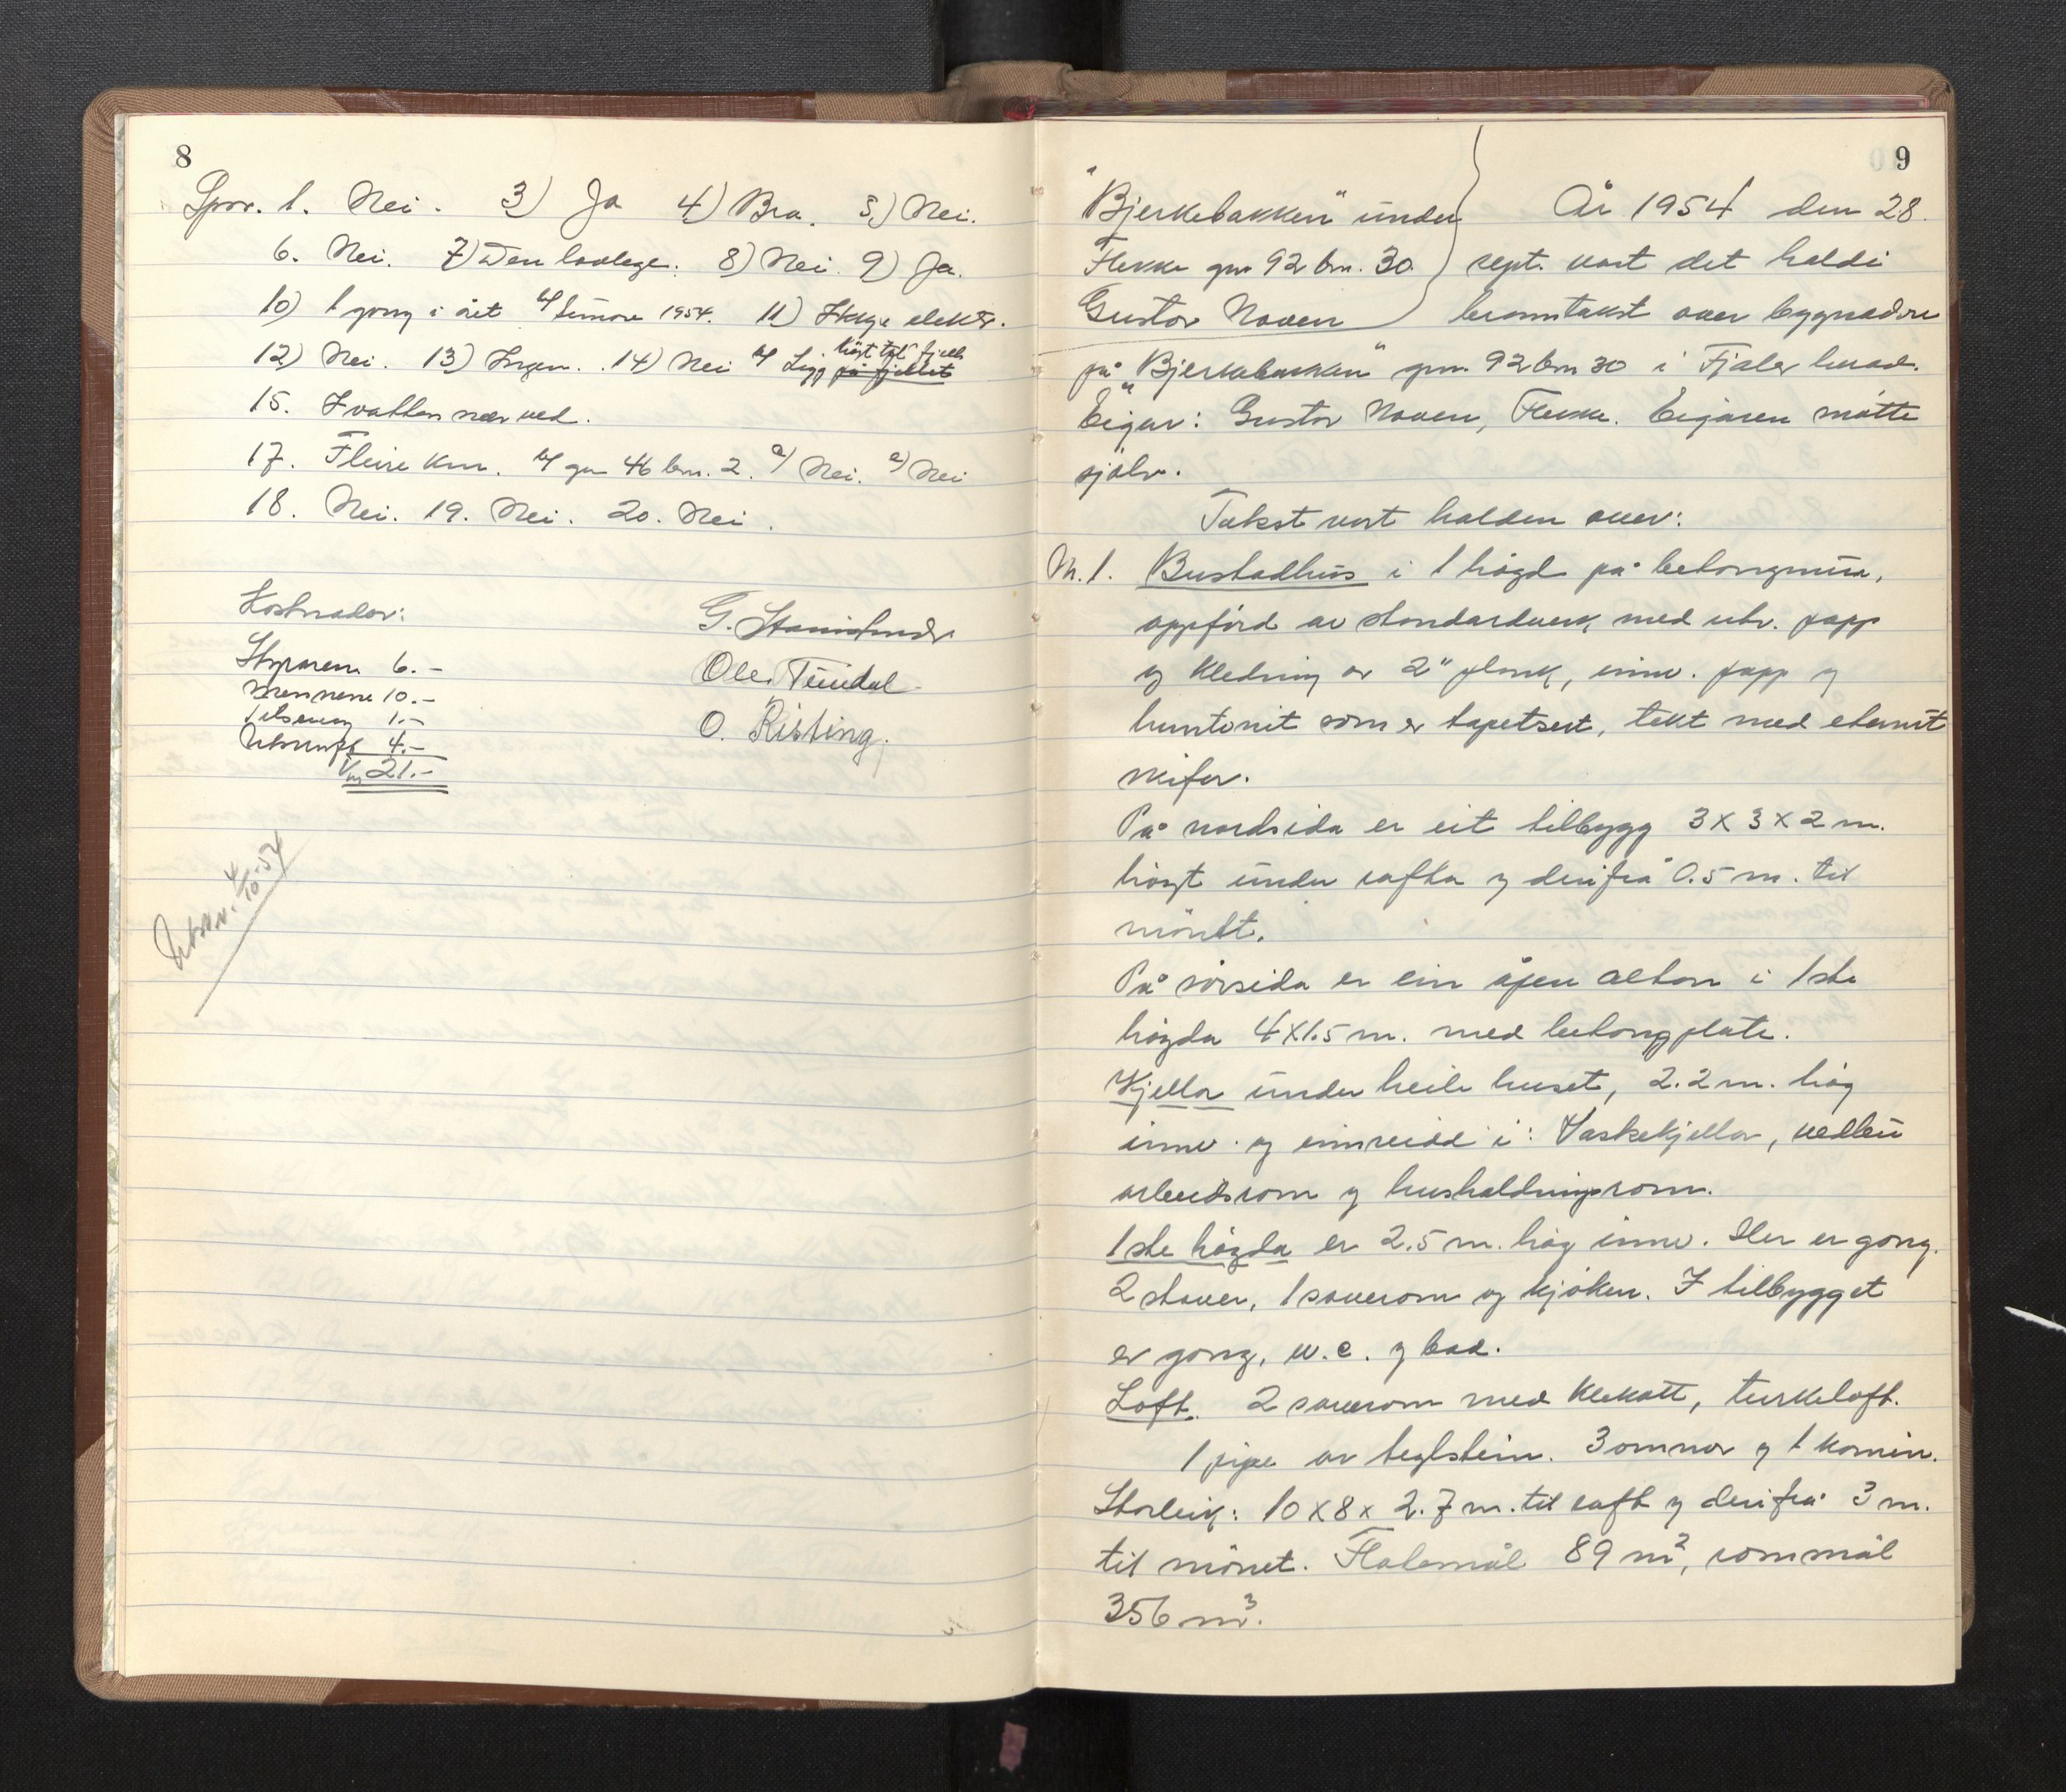 8
Spor. 1. Nei. 3) Ja 4) Bra. 5.) Nei.
6. Nei. 7) Den lovlege. 8) Nei. 9) Ja.
10) 1 gong i året 1954. 11) Ikkje elektr.
12) Nei. 13) Ingen. 14) Nei Ligg på fjellet
høgt til fjells
15. I vatten nær ved.
17. Fleire km. gnr 46 bnr. 2. Nei. Nei
18. Nei. 19. Nei. 20. Nei.
Kostnader:
Styraren 6.-
Mennene 10.-
1.-
Utskrift 4.-
Kr 21.-
G.
Ole Tveidal
O. Risting.
Utskr. 4/10-54
9
"Bjerkebakken" under
Flekke gnr 92 bnr. 30.
Gustav Noven
År 1954 den 28.
sept. vart det haldi
branntakst over bygnadene
på "Bjerkebakken" gnr. 92 bnr 30 i Fjaler herad.
Eigar: Gustav Noven, Flekke. Eigaren møtte
sjølv.
Takst vart halden over:
M. 1. Bustadhus i 1 høgd på betongmur,
oppførd av standardverk med utv. papp
og kledning av 2" plank, innv. papp og
huntonit som er tapetsert, tekt med eternit
skifer.
På nordsida er eit tilbygg 3 x 3 x 2 m.
høgt under rafta og derifrå 0.5 m. til
mønet.
På sørsida er ein åpen altan i 1ste
høgda 4x1.5 m. med betongplate.
Kjellar under heile huset, 2.2 m. høg
innv. og innreidd i: Vaskekjellar, vedbu
arbeidsrom og hushaldningsrom.
1ste høgda er 2.5 m. høg innv. Her er gong,
2 stover, 1 soverom og kjøken. I tilbygget
er gong, w.c. og bad.
Loft. 2 soverom med klekott, turkeloft.
1 pipe av teglstein. 3 omnar og 1 komin.
Storleik: 10 x 8 x 2.7 m. til raft og derifrå 3 m.
til mønet. Flatemål 89 m², rommål
356 m³.